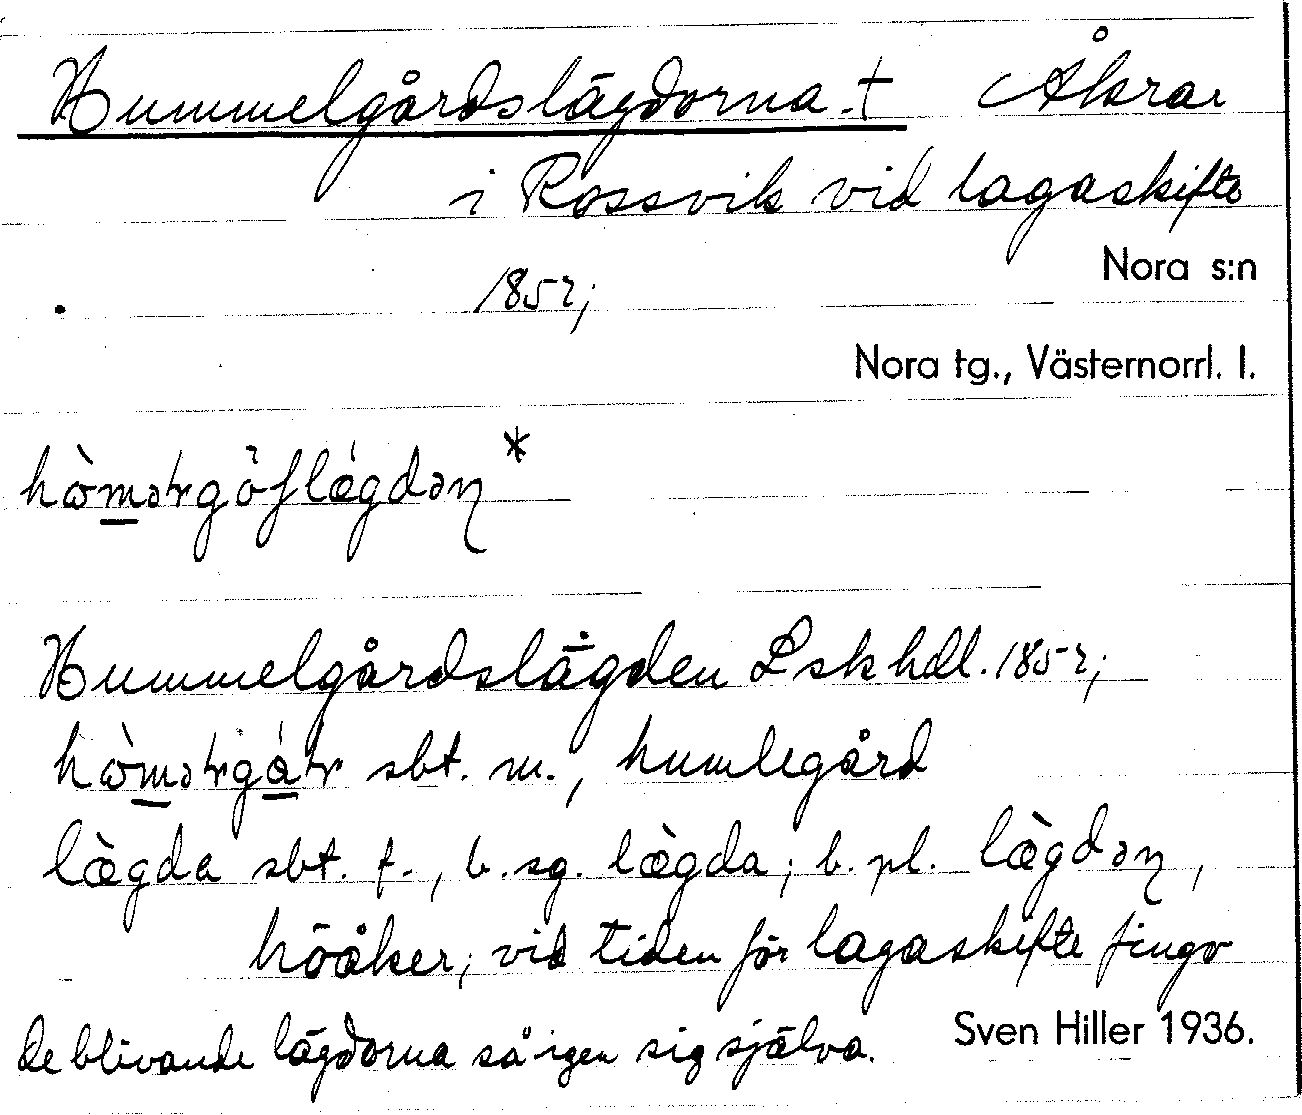 Hummelgårdslägdorna † Åkrar
i Rossvik vid lagaskifte
Nora s:n
1852;
Nora tg., Västernorrl. l.
*
Hummelgårdslägden Lskhdl. 1852;
sbt. m., humlegård
lægda sbt. f., b. sg. lægda; b. pl.
höåker; vid tiden för lagaskifte fingo
de blivande lägdorna så igen sig själva.
Sven Hiller 1936.